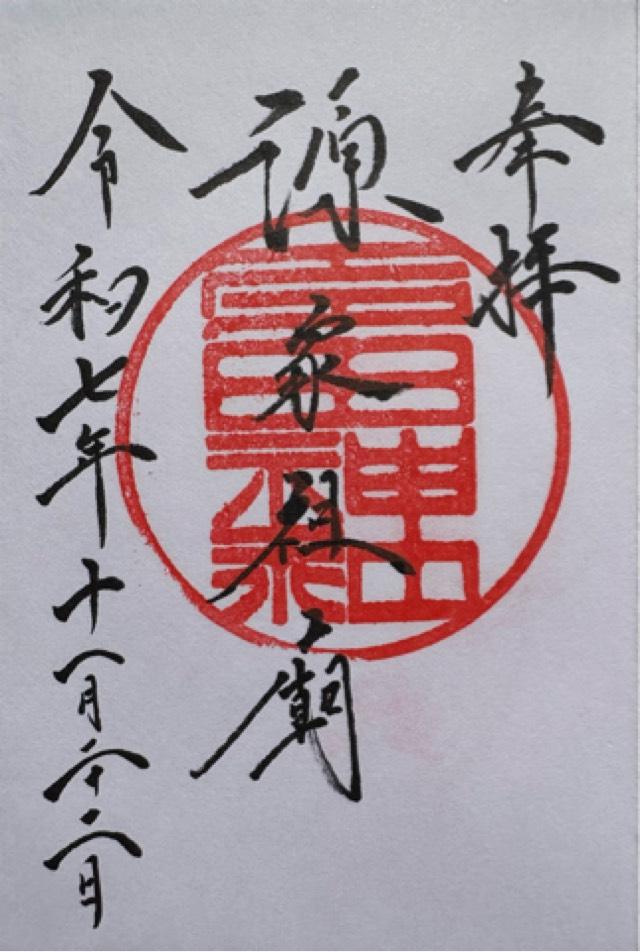 奉拝
源家祖廟
令和七年十一月二十二日